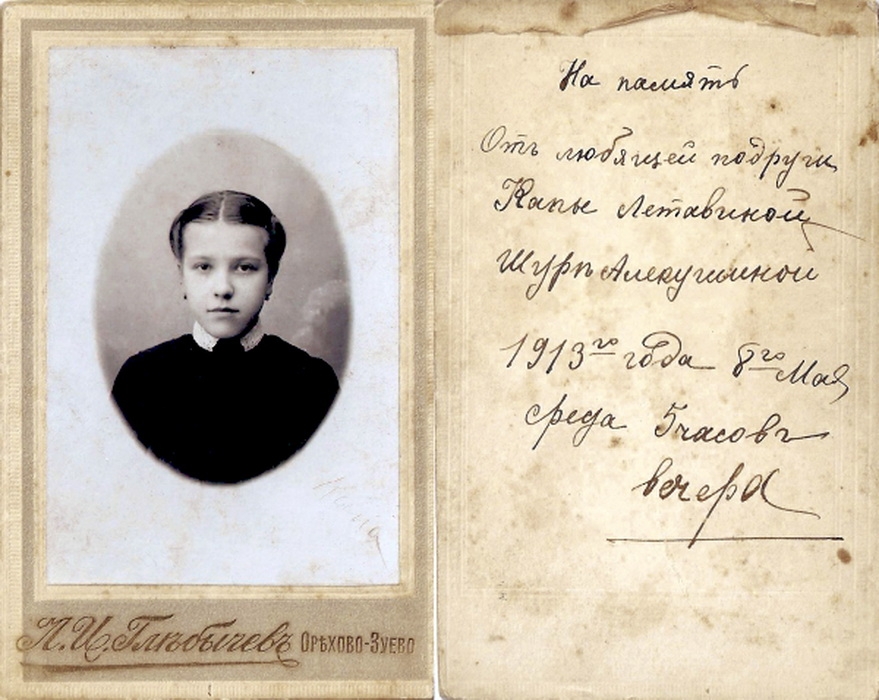 Л.И. Глѣбычевъ Орѣхово-Зуево
На память
Отъ любящей подруги
Капы Летавиной
Шурѣ Алекушиной
1913го года 8го Мая
среда 5 часовъ
вечера